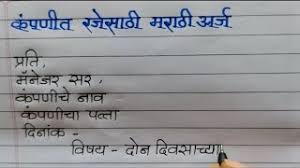 कंपणीत रजेसाठी मराठी अर्ज
प्रति,
मॅनेजर सर,
कंपणीचे नाव
कंपणीचा पत्ता
दिनांक -
विषय - दोन दिवसाच्या